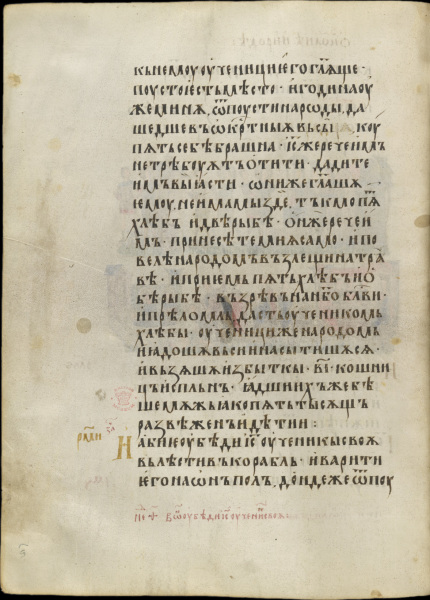 къ немоу оученици его гл҃яще ·
поусто есть мѣсто · и година оу
же мину, ѿпоусти народы, да
шедше въ ѡкртныѧ вьси коу
пять себѣ брашна · і҃с же рече имъ
не трѣбоуѫтъ отити · дадите
имъ вы ꙗсти · ѡни же гл҃ашѧ
емоу, не имамы зде, тъкмо п҃ѧ
хлѣбъ и двѣ рыбѣ · ѡн же рече и
мъ · принесѣте ми ѧ сѣмо · и по
велѣ народомъ възлещи на трѣ
вѣ · и приемь пѧть хлѣбъ и о
бѣ рыбѣ · възрѣвъ на н҃бо бл҃ви ·
и прѣломль дасть оученикомъ
хлѣбы · оученици же народомъ
и ꙗдошѧ вьси и насытишѧсѧ ·
и взѧшѧ избыткы · в҃і · кошни
цъ исплънь · ꙗдшиихъ же бѣ
ше мѫжь ꙗко пѧть тысѫщъ
развѣ женъ и дѣтии :
Абие оубѣди і҃с оученикы своѧ
вьлѣсти въ корабль · и варити
и его на ѡнъ полъ, дондеже ѿпоу